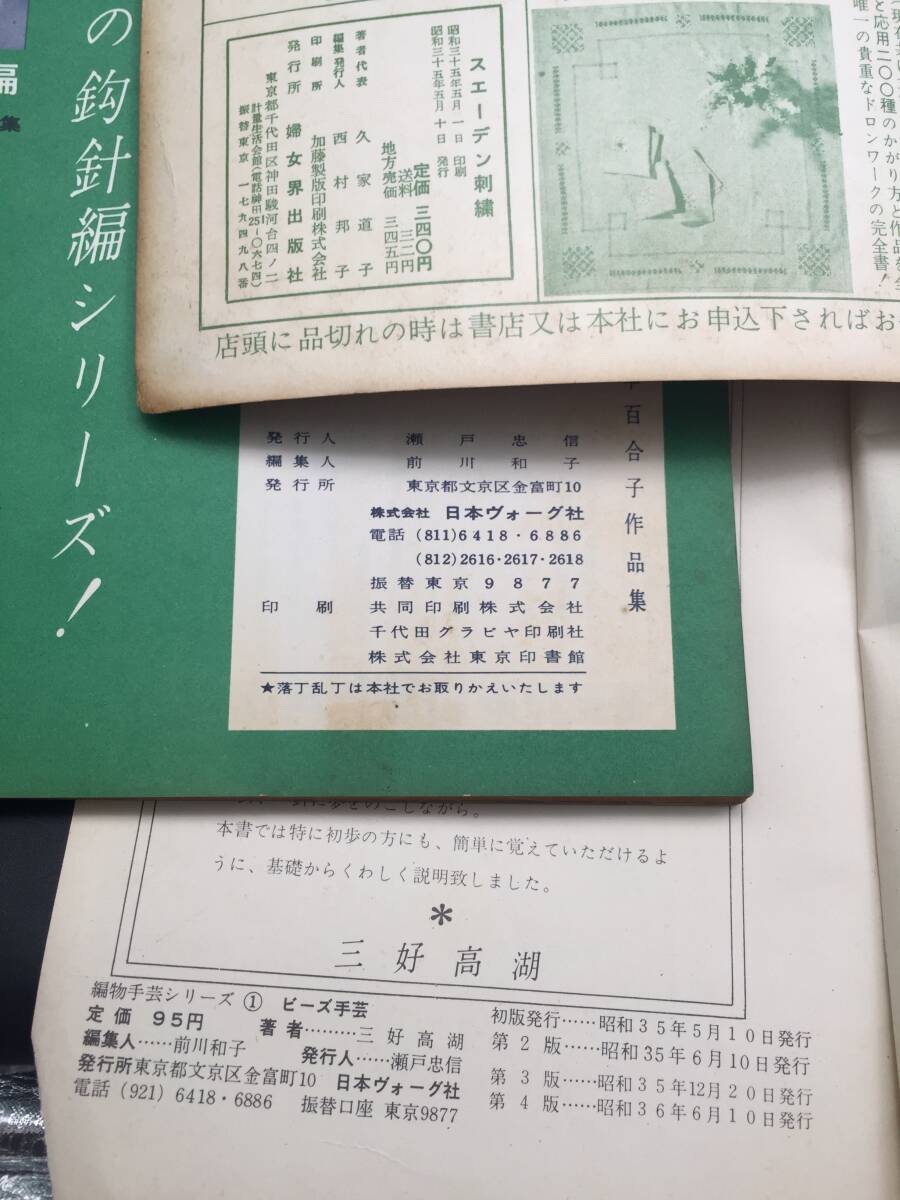 の鈎針編シリーズ!
編
集
スエーデン刺繍
昭和三十五年五月一日 印刷
昭和三十五年五月十日 発行
定価 三四〇円
送料 三二円
地方売価 三四五円
著者代表 久家道子
編集発行人 西村邦子
印刷所 加藤製版印刷株式会社
発行所 婦女界出版社
東京都千代田区神田駿河台四ノ二
計量生活会館(電話神田25-〇六七四)
振替東京 一七九四九八番
と応用二〇〇種のかがり方と作品を
唯一の貴重なドロンワークの完全書!
店頭に品切れの時は書店又は本社にお申込下さればお
百合子作品集
発行人 瀬戸忠信
編集人 前川和子
発行所 東京都文京区金富町10
株式会社 日本ヴォーグ社
電話 (811)6418・6886
(812)2616・2617・2618
振替東京9877
印刷 共同印刷株式会社
千代田グラビヤ印刷社
株式会社東京印書館
★落丁乱丁は本社でお取りかえいたします
本書では特に初歩の方にも、簡単に覚えていただけるよ
うに、基礎からくわしく説明致しました。
*
三好高湖
編物手芸シリーズ ① ビーズ手芸
定価 95円 著者………三好高湖
編集人……前川和子 発行人……瀬戸忠信
発行所東京都文京区金富町10 日本ヴォーグ社
電話 (921) 6418・6886 振替口座 東京9877
初版発行……昭和35年5月10日発行
第2版……昭和35年6月10日発行
第3版……昭和35年12月20日発行
第4版……昭和36年6月10日発行